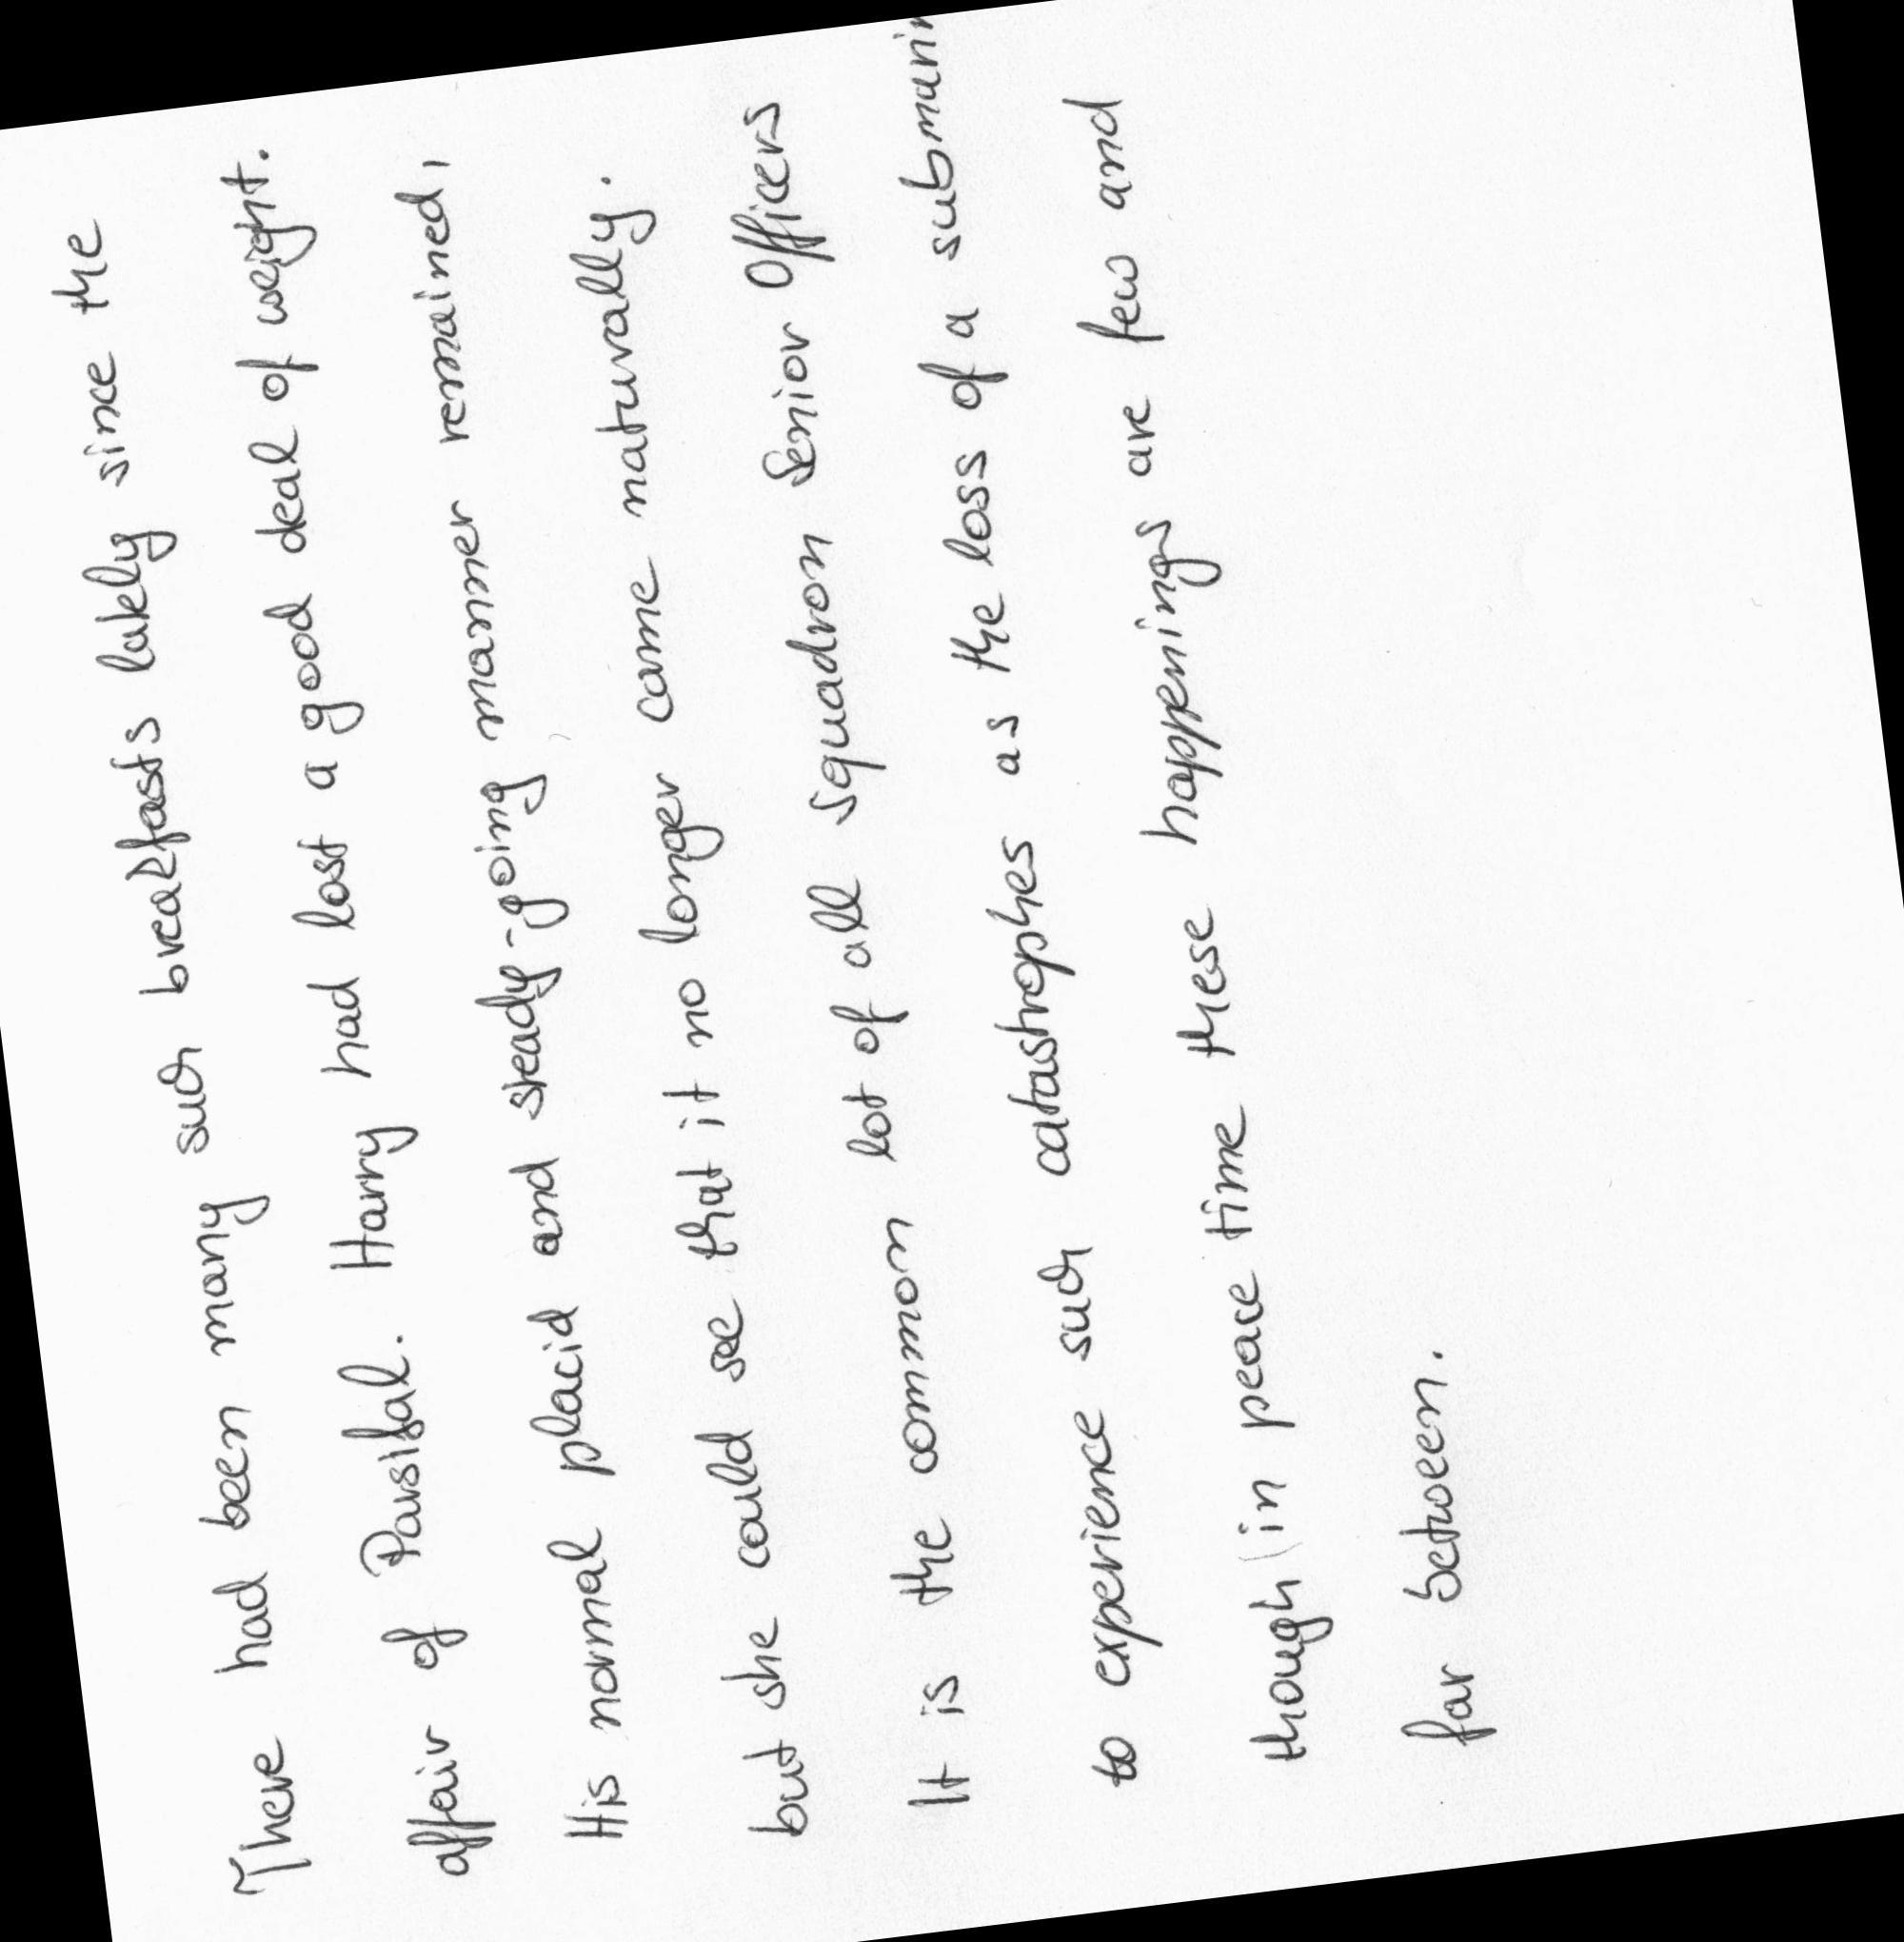 There had been many such breakfasts lately since the
affair of Parsifal. Harry had lost a good deal of weight.
His normal placid and steady-going manner remained,
but she could see that it no longer came naturally.
It is the common lot of all Squadron Senior Officers
to experience such catastrophes as the loss of a submarin
though in peace time these happenings are few and
far between.